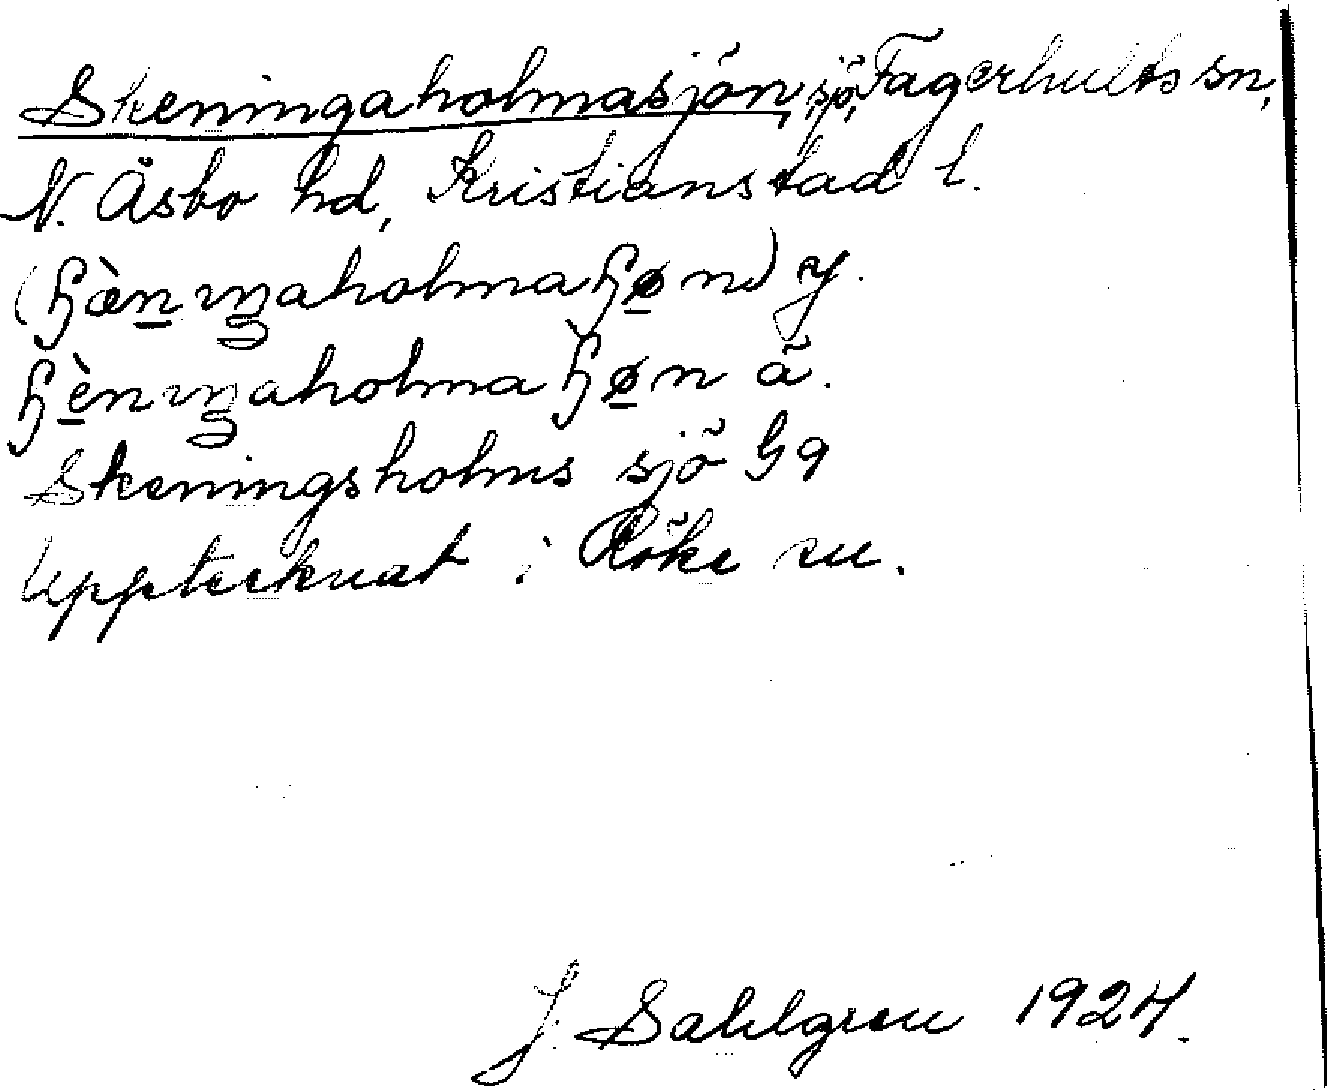 Skeningaholmasjön, sjö, Fagerhults sn,
N. Åsbo hd, Kristianstad l.
(ɧæ̀niŋaholmaɧøn) y.
ɧèniŋaholmaɧøn ä.
Skeningsholms sjö G9
Upptecknat i Röke sn.
J. Sahlgren 1924.